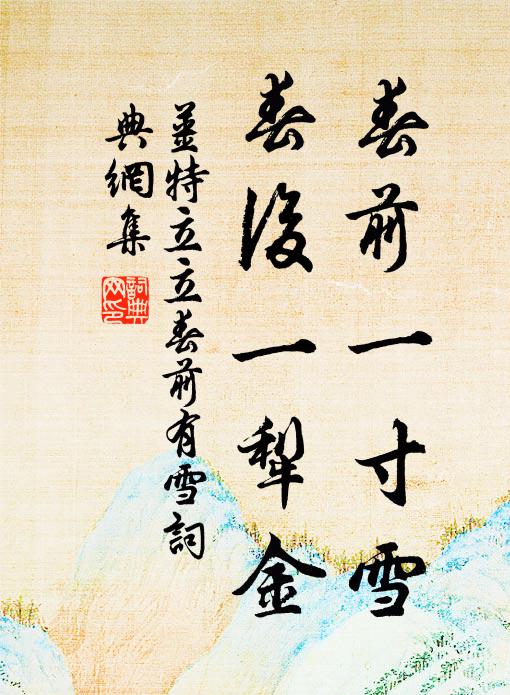 春前一寸雪
春後一犁金
姜特立立春前有雪詞
典網集
詞典
网印